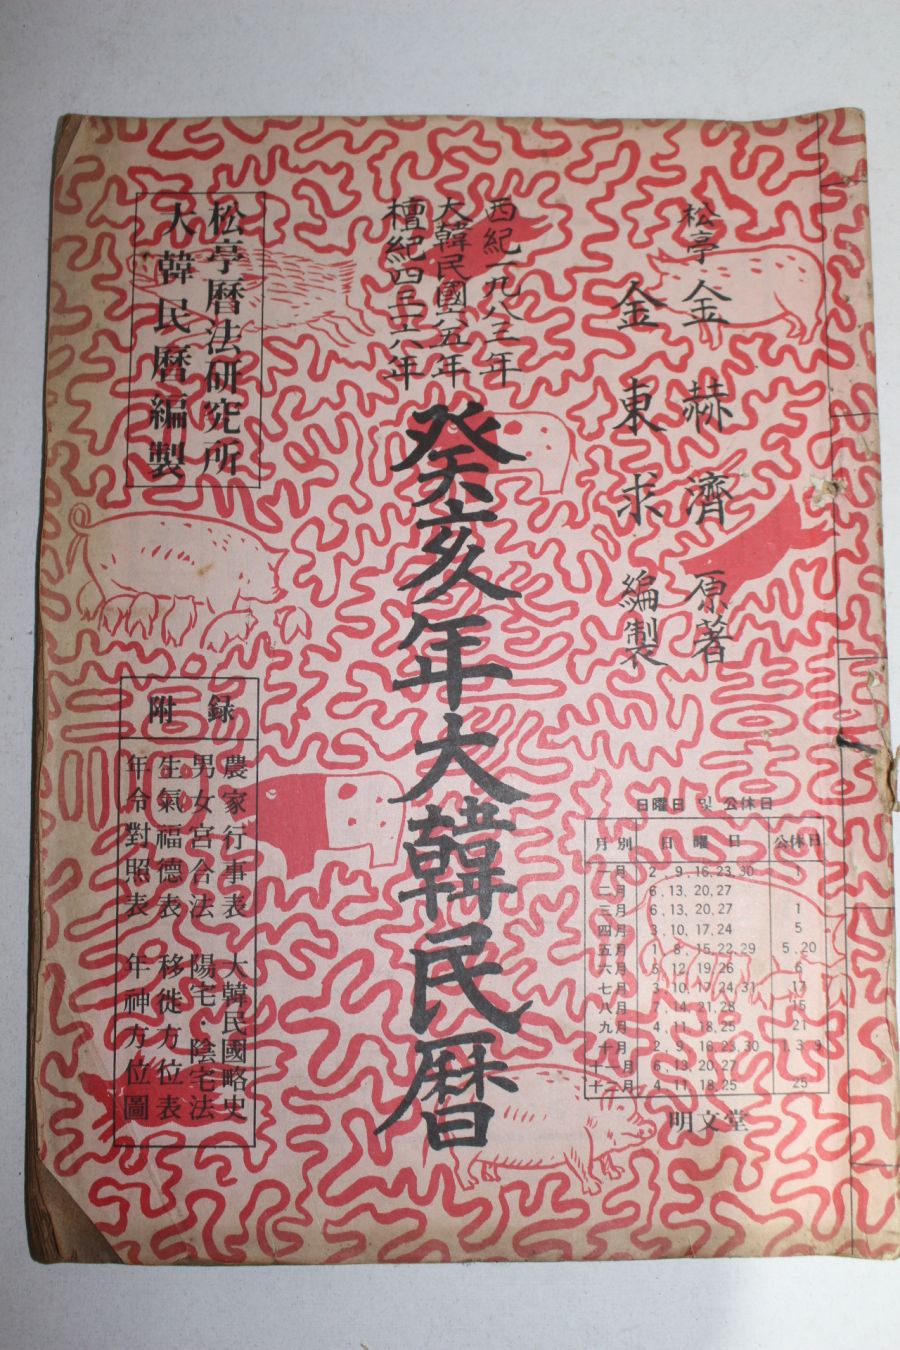 松亭 金赫濟 原著
金東求 編製
西紀一九八三年
大韓民國六五年
檀紀四三一六年
癸亥年大韓民曆
松亭曆法硏究所
大韓民曆編製
附錄
農家行事表 大韓民國略史
男女宮合法 陽宅·陰宅法
生氣福德表 移徙方位表
年令對照表 年神方位圖
日曜日 및 公休日
月別 日曜日 公休日
一月 2 9.16.23.30 1
二月 6.13.20.27
三月 6.13.20.27 1
四月 3.10.17.24 5
五月 1.8.15.22.29 5.20
六月 5 12.19.26 6
七月 3 10.17.24.31 17
八月 7.14.21.28 15
九月 4.11.18.25 21
十月 2.9.16.23.30 1.3 9
十一月 6.13.20.27
十二月 4.11.18.25 25
明文堂